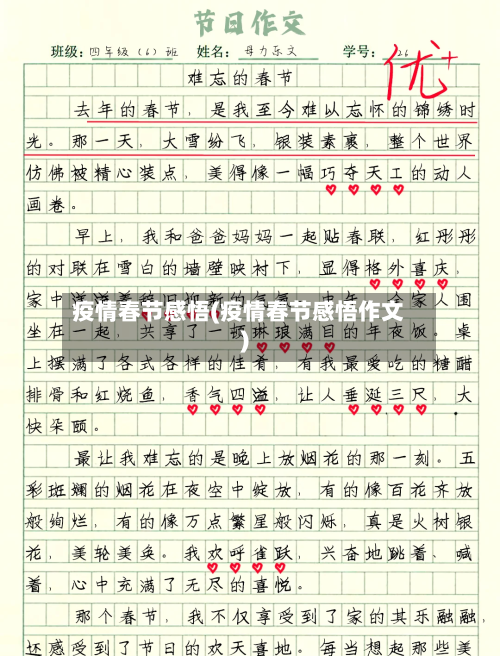 节日作文
班级：四年级（6）班 姓名： 学号：26
优+
难忘的春节
去年的春节，是我至今难以忘怀的锦绣时
光。那一天，大雪纷飞，银装素裹，整个世界
仿佛被精心装点，美得像一幅巧夺天工的动人
画卷。
早上，我和爸爸妈妈一起贴春联，红彤彤
的对联在雪白的墙壁映衬下，显得格外喜庆，
家中
疫情春节感悟(疫情春节感悟作文
)
人围
坐在一起，共享了一顿琳琅满目的年夜饭。桌
上摆满了各式各样的佳肴，有我最爱吃的糖醋
排骨和红烧鱼，香气四溢，让人垂涎三尺，大
快朵颐。
最让我难忘的是晚上放烟花的那一刻。五
彩斑斓的烟花在夜空中绽放，有的像百花齐放
般绚烂，有的像万点繁星般闪烁，真是火树银
花，美轮美奂。我欢呼雀跃，兴奋地跳着、喊
着，心中充满了无尽的喜悦。
那个春节，我不仅享受到了家的其乐融融，
还感受到了节日的欢天喜地。每当想起那些美